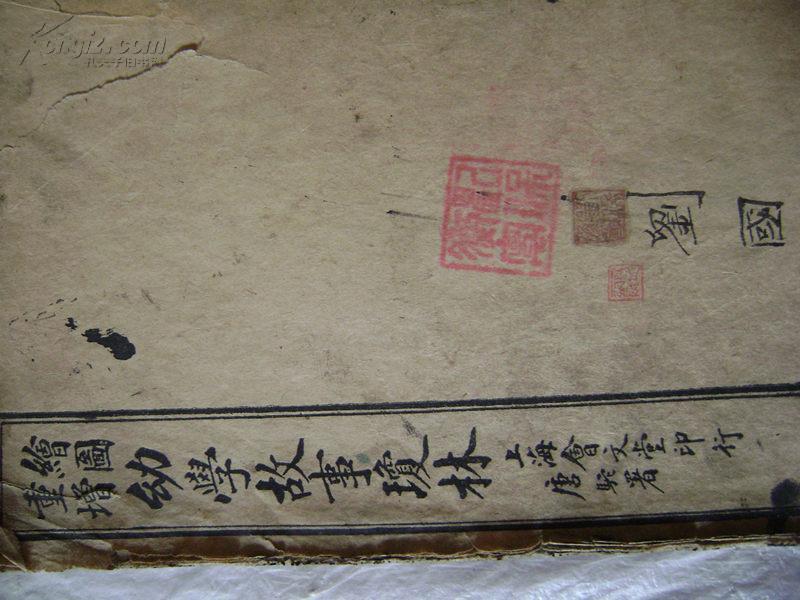 Kongfz.com
孔夫子旧书网
劉國
繪圖
重增
幼學故事瓊林
上海會文堂印行
唐駝署